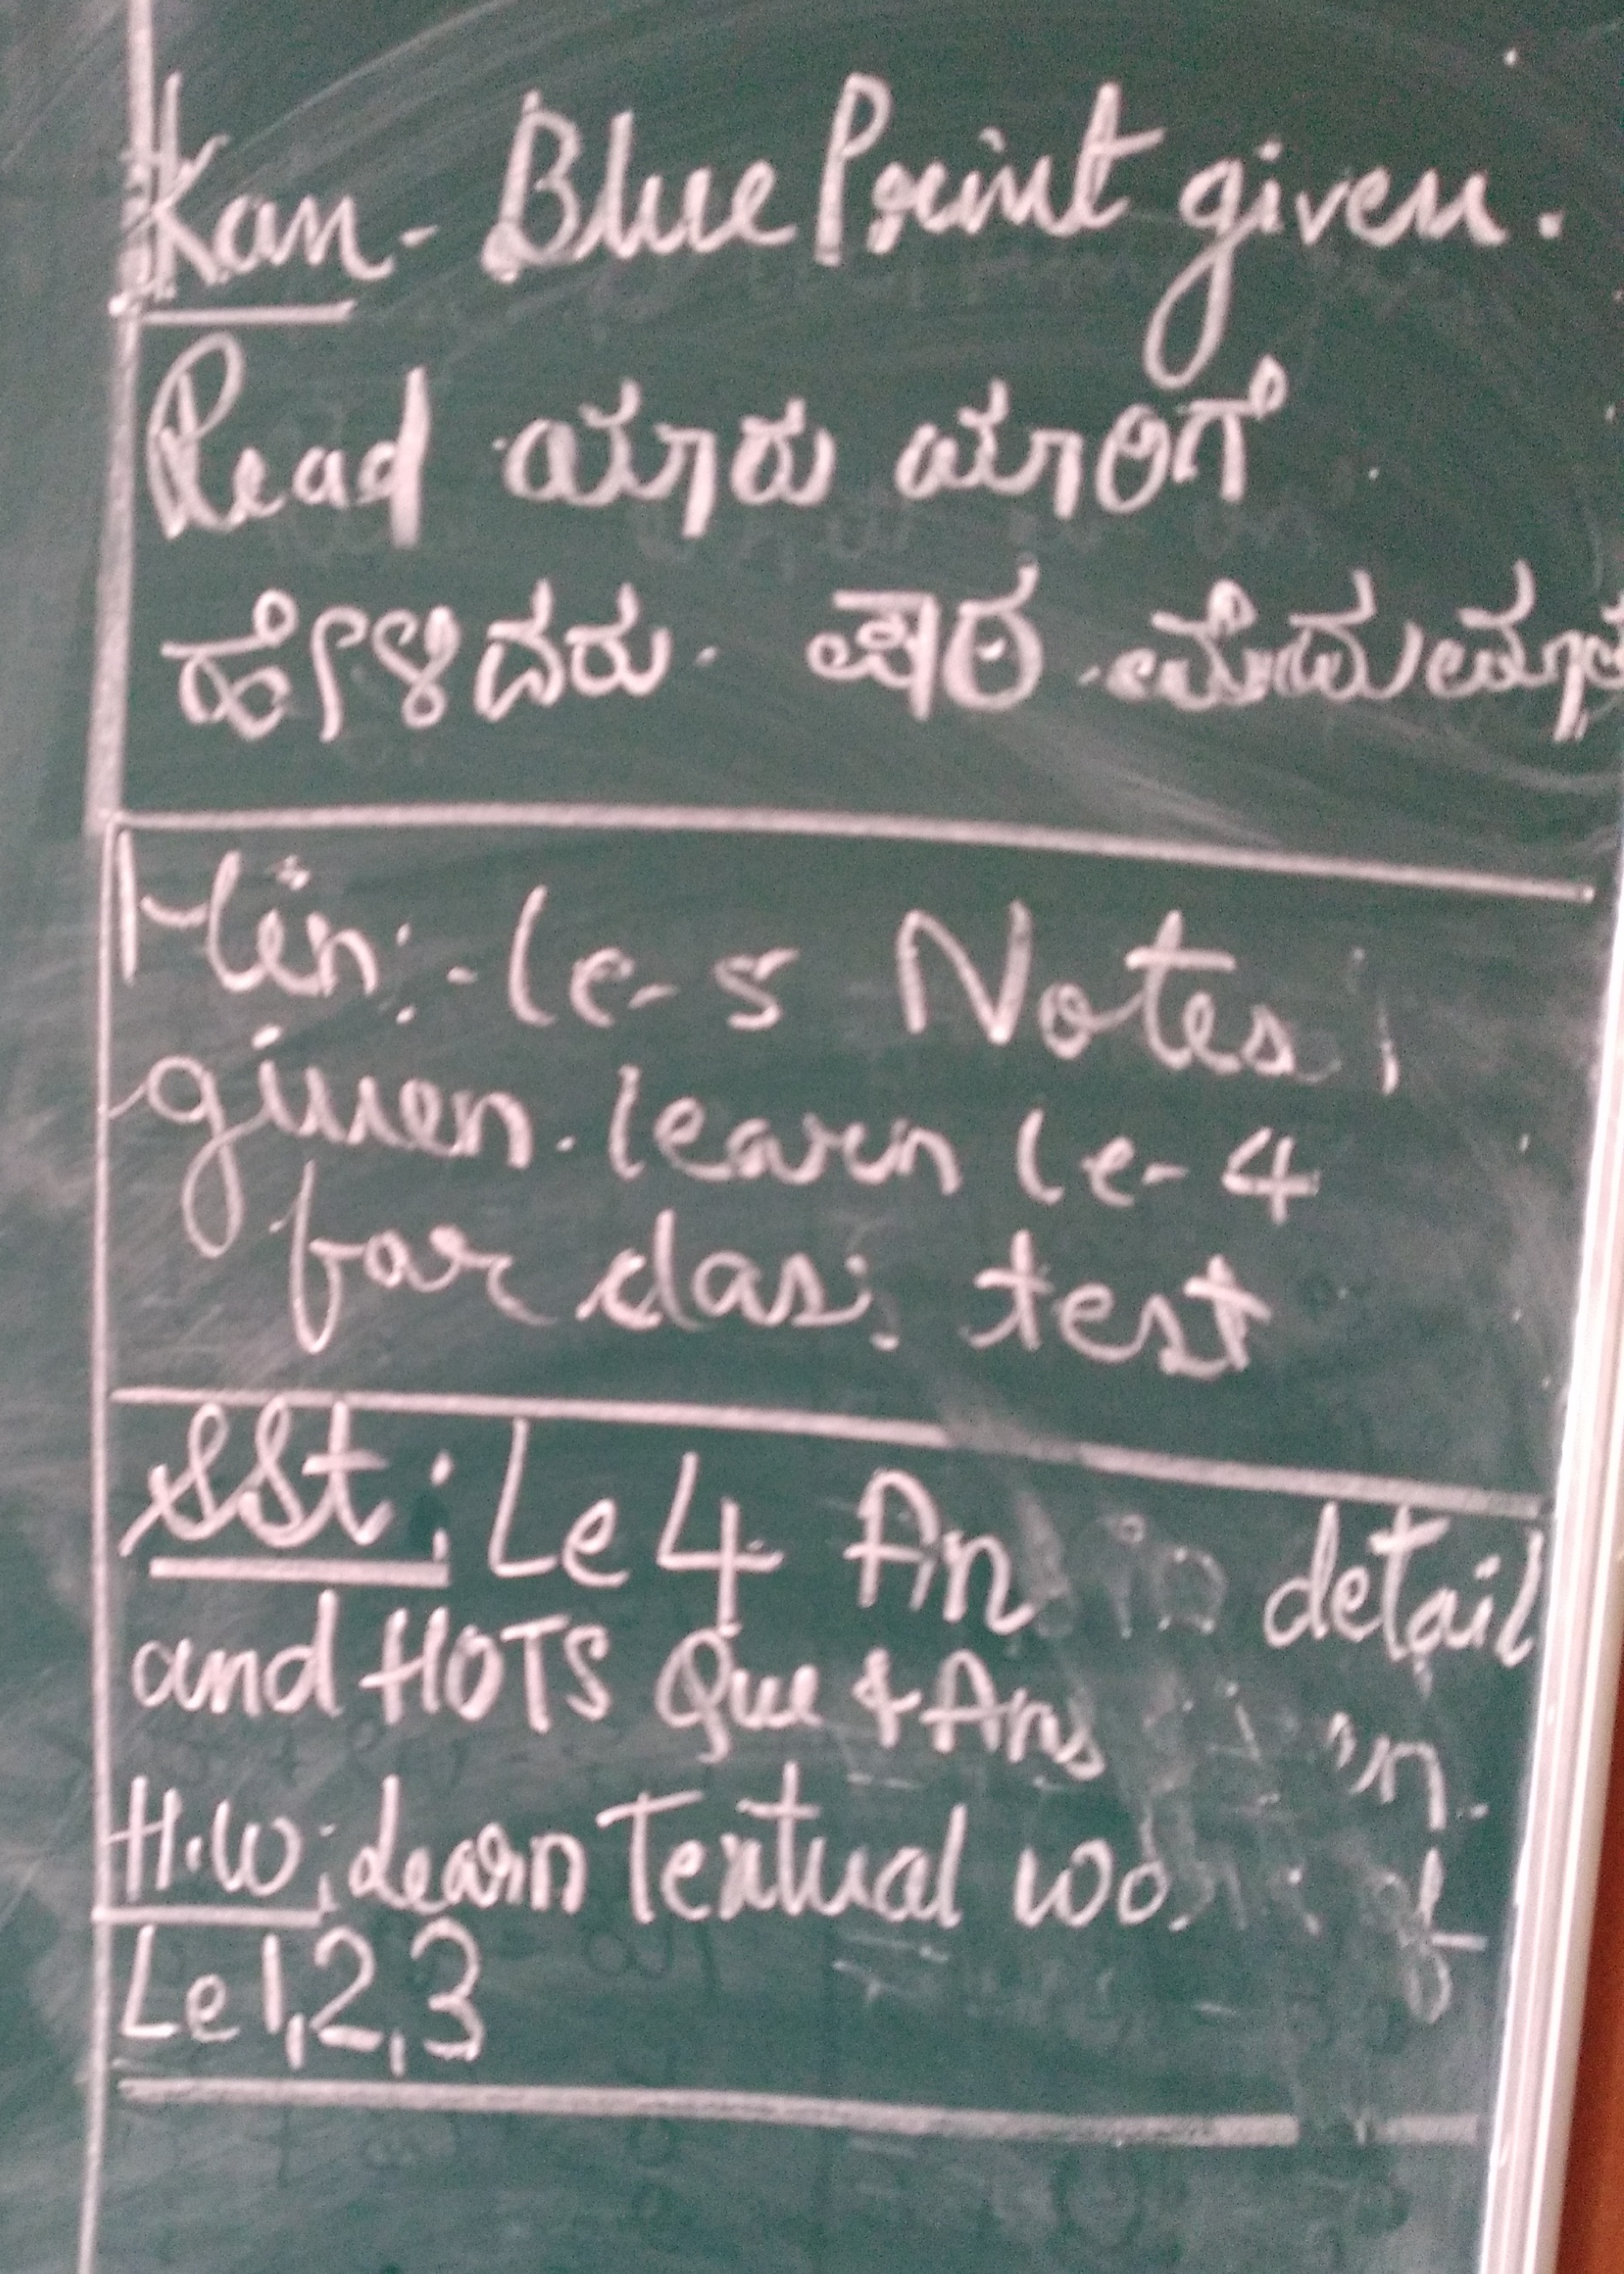 Kan - Blue Print given.
Read ಯಾರು ಯಾರಿಗೆ
ಹೇಳಿದರು. ಪಾಠ
Hin:- le-5 Notes
given. learn le-4
for class test
SSt: Le 4 detail
and HOTS Que & Ans
H.W: Learn Textual
Le 1,2,3